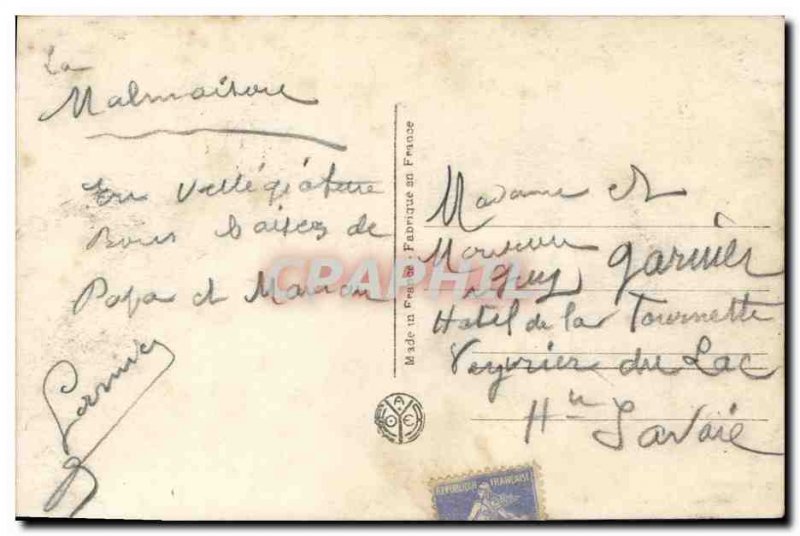 La
Malmaison
En villégiature
Bons baisers de
Papa et Maman
Garnier
Made in France - Fabriqué en France
Madame et
Monsieur
Guy Garnier
Hotel de la Tournette
Veyrier du Lac
Hte Savoie
CRAPHIL
REPUBLIQUE FRANÇAISE